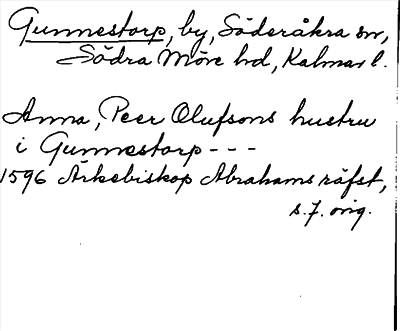 Gunnestorp, by, Söderåkra sn,
Södra Möre hd, Kalmar l.
Anna, Peer Olufsons hustru
i Gunnestorp - - -
1596 Ärkebiskop Abrahams räfst,
s. 7. orig.